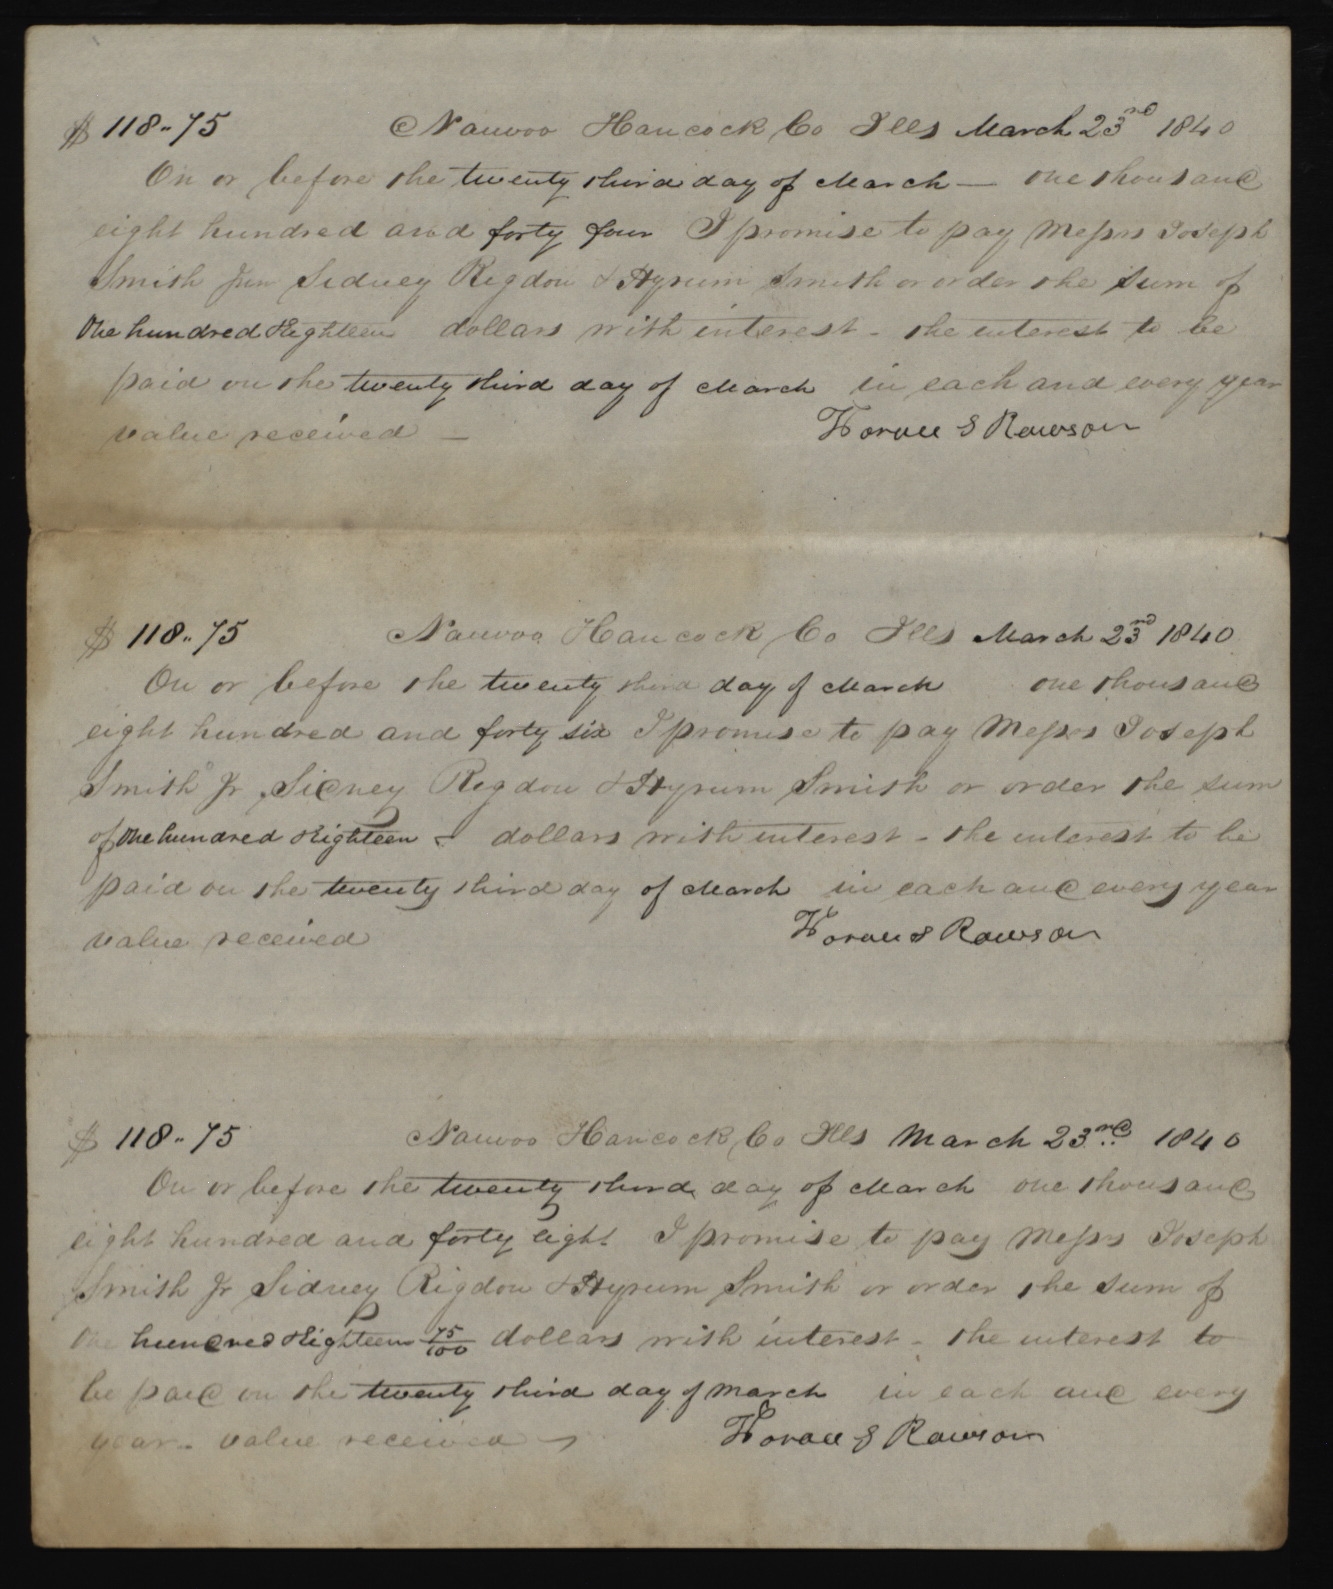 $ 118..75 Nauvoo Hancock Co Ills March 23rd 1840
On or before the twenty third day of March — one thousand
eight hundred and forty four I promise to pay Messrs Joseph
Smith Jun Sidney Rigdon & Hyrum Smith or order the sum of
One hundred & Eighteen dollars with interest - the interest to be
paid on the twenty third day of March in each and every year
value received — Horace S Rawson
$ 118..75 Nauvoo Hancock Co Ills March 23rd 1840
On or before the twenty third day of March one thousand
eight hundred and forty six I promise to pay Messrs Joseph
Smith Jr Sidney Rigdon & Hyrum Smith or order the sum
of One hundred & Eighteen dollars with interest - the interest to be
paid on the twenty third day of March in each and every year
value received Horace S Rawson
$ 118..75 Nauvoo Hancock Co Ills March 23rd 1840
On or before the twenty third day of March one thousand
eight hundred and forty eight I promise to pay Messrs Joseph
Smith Jr Sidney Rigdon & Hyrum Smith or order the sum of
One hundred & Eighteen 75/100 dollars with interest - the interest to
be paid on the twenty third day of March in each and every
year - value received Horace S Rawson